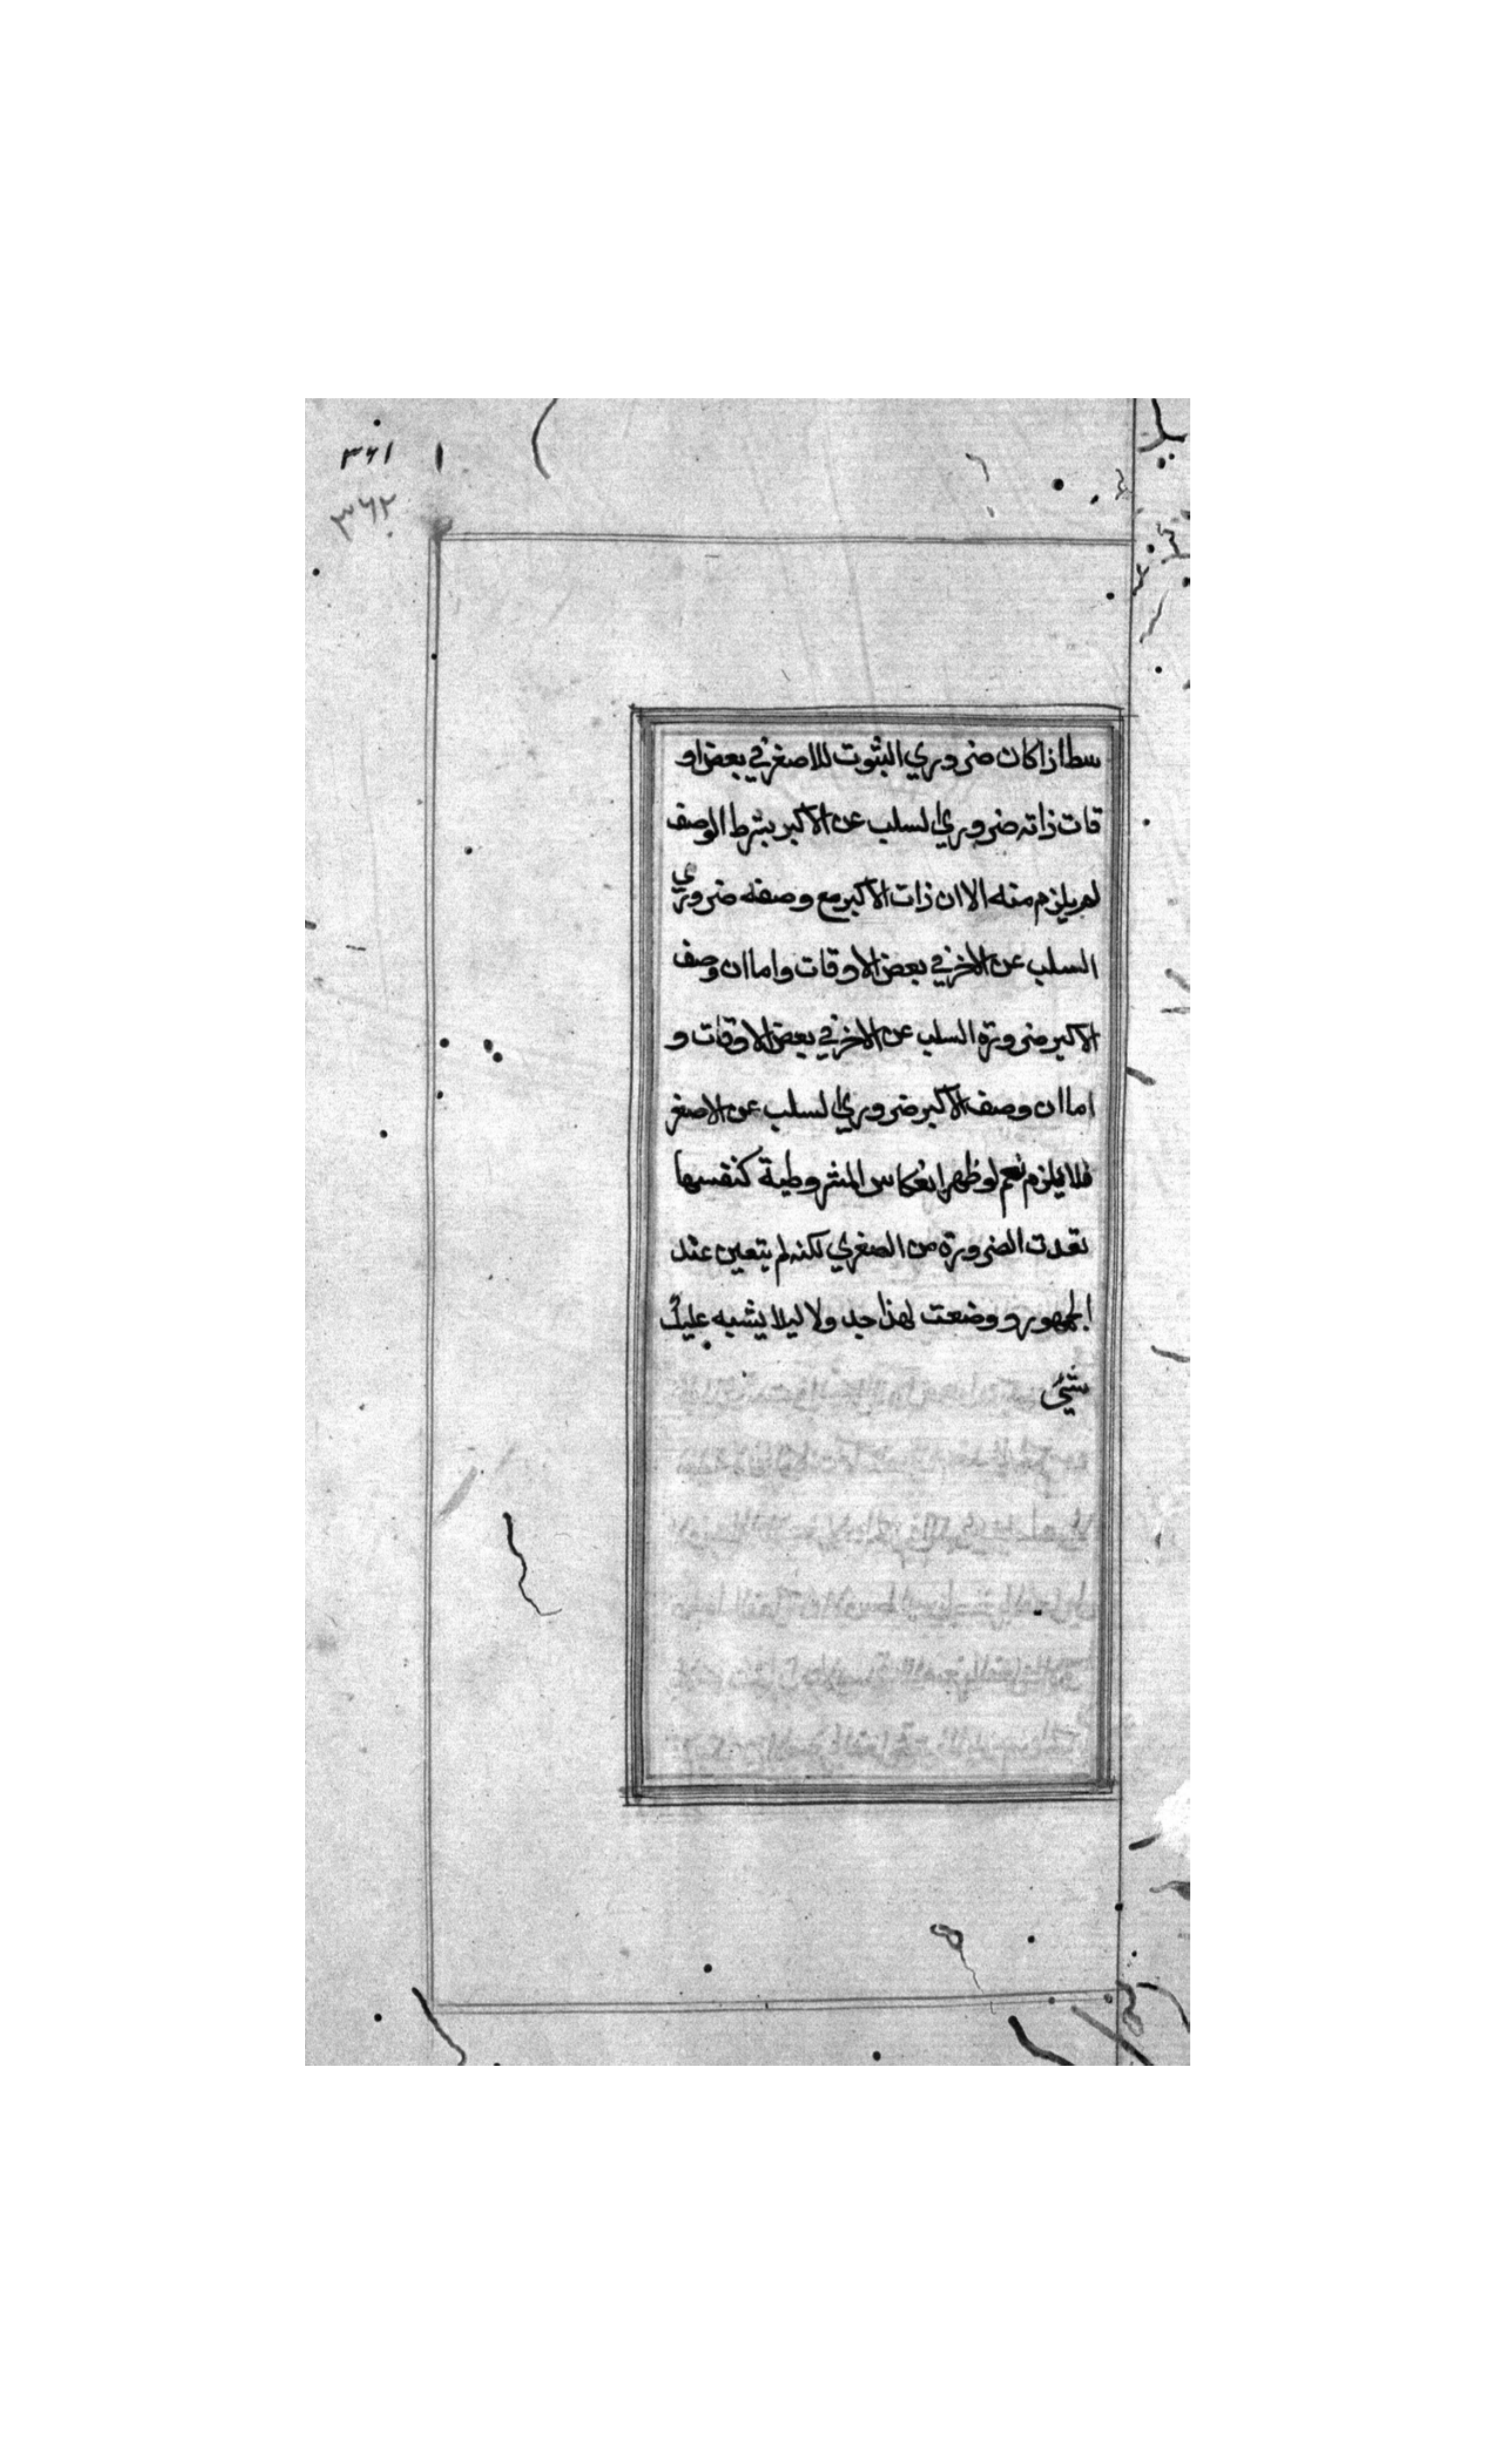 ٣٦١
٣٦٢
سطا اذا كان ضروري الثبوت للاصغر في بعض او
قات ذاته ضروري السلب عن الاكبر بشرط الوصف
لم يلزم منه الا ان ذات الاكبر مع وصفه ضروري
السلب عن الاخر في بعض الاوقات واما ان وصف
الاكبر ضرورة السلب عن الاخر في بعض الاوقات و
اما ان وصف الاكبر ضروري السلب عن الاصغر
فلا يلزم نعم لو ظهر انعكاس المشروطية كنفسها
تعدت الضرورة من الصغري لكنه لم يتعين عند
الجمهور ووضعت لهذا جدولا ليلا يشبه عليك
شيئ